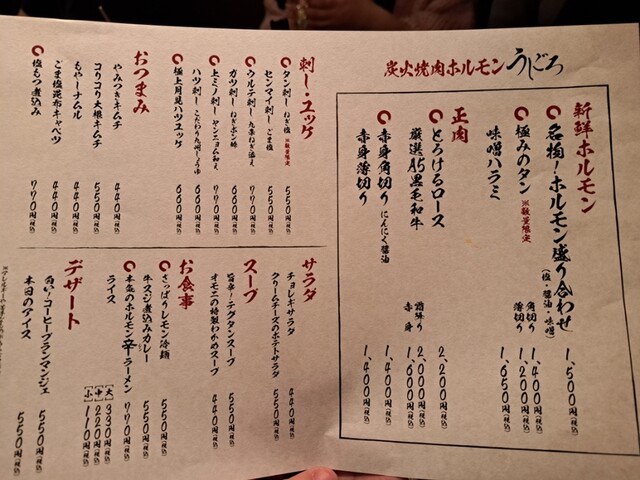 炭火焼肉ホルモン うしごろ
新鮮ホルモン
名物！ホルモン盛り合わせ 1,500円(税込)
(塩・醤油・味噌)
極みのタン ※数量限定 角切り 1,400円(税込)
薄切り 1,200円(税込)
味噌ハラミ 1,650円(税込)
正肉
とろけるロース 2,200円(税込)
厳選A5黒毛和牛 霜降り 2,000円(税込)
赤身 1,600円(税込)
赤身角切り にんにく醤油 1,400円(税込)
赤身薄切り 1,400円(税込)
刺し・ユッケ
タン刺し ねぎ塩 ※数量限定 550円(税込)
センマイ刺し ごま塩 550円(税込)
ウルテ刺し 九条ねぎ添え 770円(税込)
ガツ刺し ねぎポン酢 660円(税込)
上ミノ刺し ヤンニョム和え 770円(税込)
ハツ刺し こだわり九州しょうゆ 660円(税込)
極上月見ハツユッケ 660円(税込)
おつまみ
やみつきキムチ 440円(税込)
コリコリ大根キムチ 550円(税込)
もやしナムル 440円(税込)
ごま塩昆布キャベツ 440円(税込)
塩もつ煮込み 770円(税込)
サラダ
チョレギサラダ 440円(税込)
クリームチーズのポテトサラダ 550円(税込)
スープ
旨辛！テグタンスープ 550円(税込)
オモニの特製わかめスープ 440円(税込)
お食事
さっぱりレモン冷麺 550円(税込)
牛スジ煮込みカレー 550円(税込)
本気のホルモン辛ラーメン 770円(税込)
ライス [大] 330円(税込)
[中] 220円(税込)
[小] 110円(税込)
デザート
白い！コーヒーブランマンジェ 550円(税込)
本日のアイス 550円(税込)